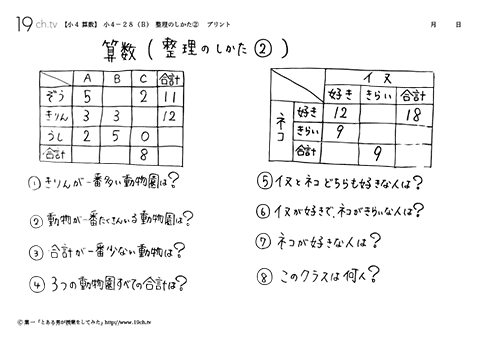 19ch.tv 【小4 算数】 小4－28（B） 整理のしかた② プリント 月 日
算数(整理のしかた②)
A B C 合計
ぞう 5 2 11
きりん 3 3 12
うし 2 5 0
合計 8
イヌ
好き きらい 合計
ネコ
好き 12 18
きらい 9
合計 9
①きりんが一番多い動物園は?
②動物が一番たくさんいる動物園は?
③合計が一番少ない動物は?
④3つの動物園すべての合計は?
⑤イヌとネコどちらも好きな人は?
⑥イヌが好きで、ネコがきらいな人は?
⑦ネコが好きな人は?
⑧このクラスは何人?
© 葉一「とある男が授業をしてみた」http://www.19ch.tv